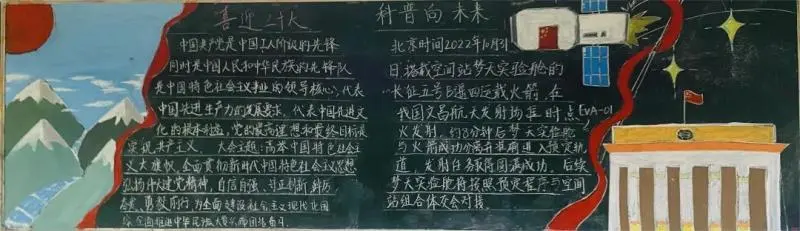 喜迎二十大
中国共产党是中国工人阶级的先锋
同时是中国人民和中华民族的先锋队
是中国特色社会主义事业的领导核心,代表
中国先进生产力的发展要求,代表中国先进文
化的根本利益,党的最高理想和最终目标是
实现共产主义。大会主题:高举中国特色社会主
义大旗帜,全面贯彻新时代中国特色社会主义思想
弘扬伟大建党精神,自信自强、守正创新,踔厉
奋发、勇毅前行,为全面建设社会主义现代化国
家、全面推进中华民族伟大复兴而团结奋斗
科普向未来
北京时间2022年10月31
日搭载空间站梦天实验舱的
长征五号B遥四运载火箭,在
我国文昌航天发射场准时点
火发射,约8分钟后梦天实验舱
与火箭成功分离并准确进入预定轨
道,发射任务取得圆满成功。后续
梦天实验舱将按照预定程序与空间
站组合体交会对接
EVA-01